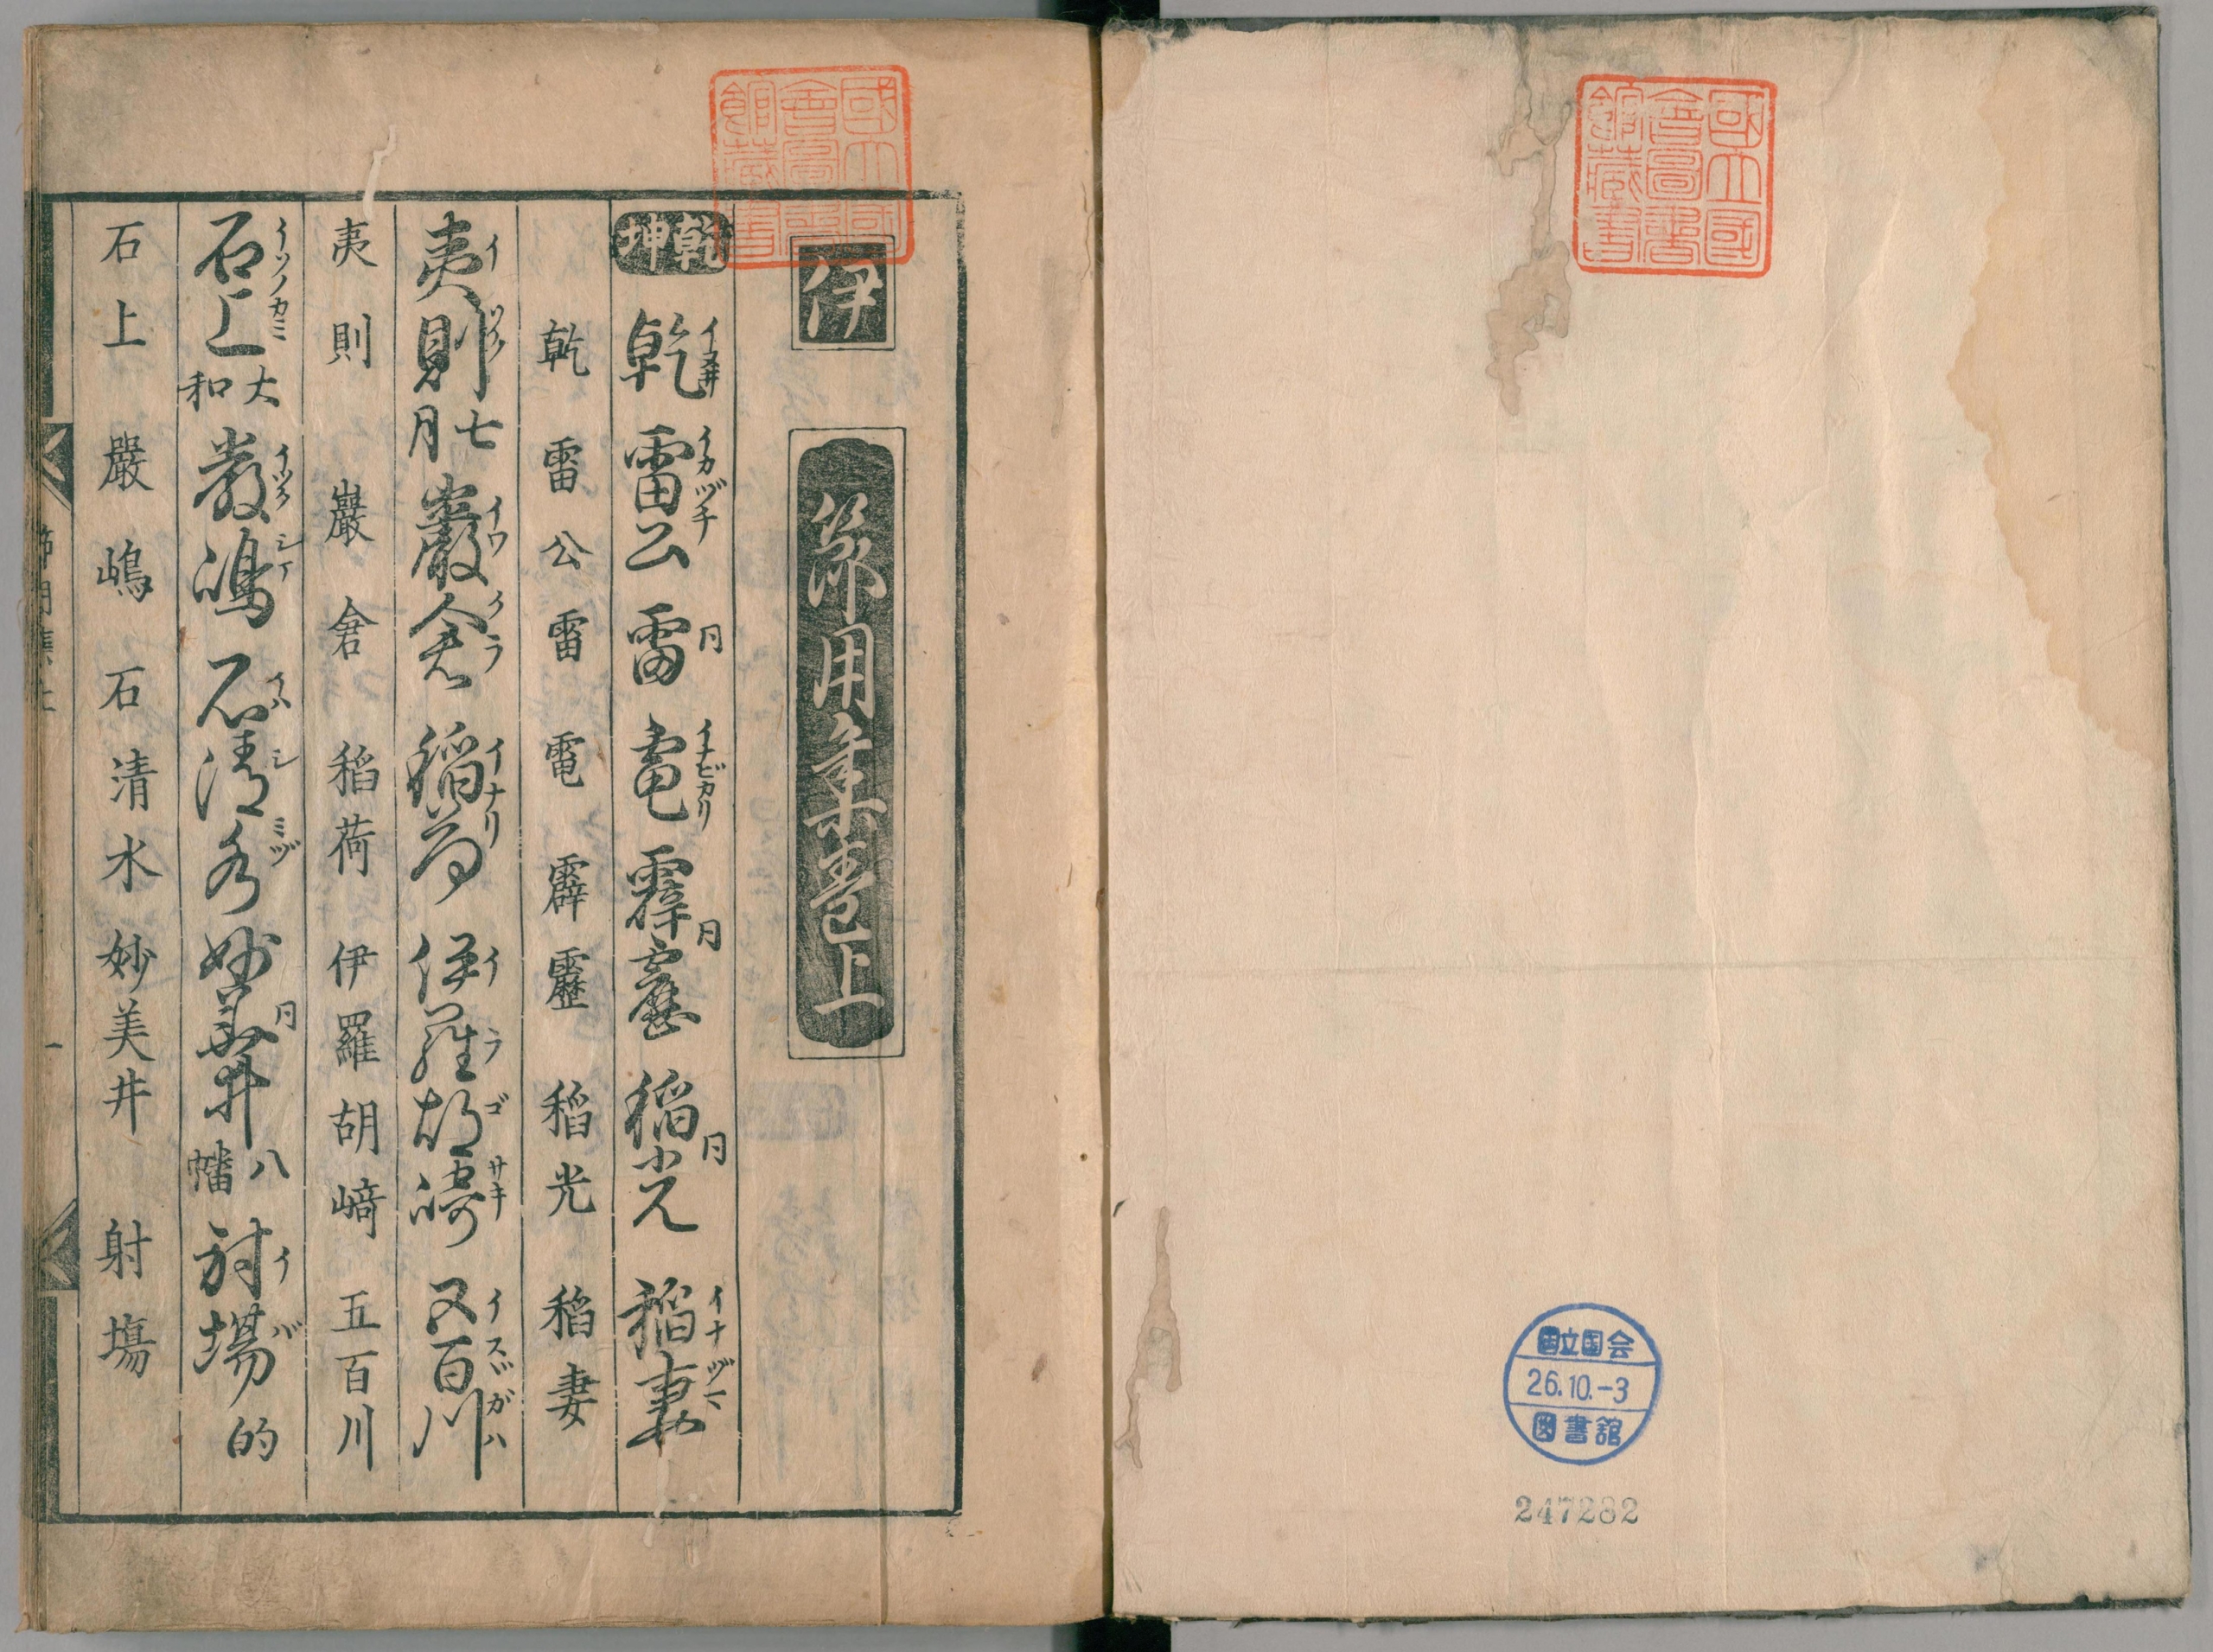 國立國
會圖書
館藏書
国立国会
26.10.-3
図書館
247282
國立國
會圖書
館藏書
伊
節用集卷上
乾坤
乾 イヌ井 雷公 イカヅチ 雷 同 電 イナビカリ 霹靂 同 稲光 同 稲妻 イナヅマ
乾 雷公 雷 電 霹靂 稲光 稲妻
夷則 七月 巖倉 イワクラ 稲荷 イナリ 伊羅胡﨑 イラゴサキ 五百川 イスヾガハ
夷則 巖倉 稲荷 伊羅胡﨑 五百川
石上 イソノカミ 大和 嚴嶋 イツクシマ 石清水 イハシミヅ 妙美井 同 八幡 射場 イバ 的
石上 嚴嶋 石清水 妙美井 射塲
節用集上
一